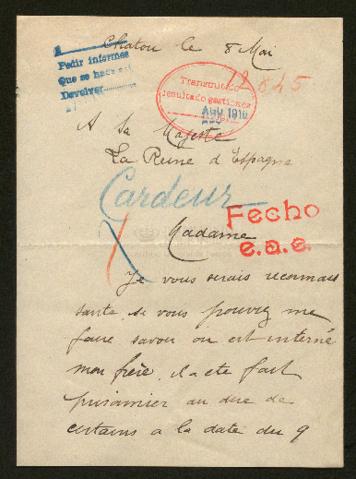 Chatou le 8 Mai
Pedir informes
Que se haga
Devolver
Transmitido
resultado gestiones
1916
A Sa Majesté
La Reine d'Espagne
Cardeur
Fecho
e.a.e.
Madame
Je vous serais reconnais
sante, si vous pouvez me
faire savoir ou est interné
mon frère, il a ete fait
prisonnier au dire de
certains a la date du 9